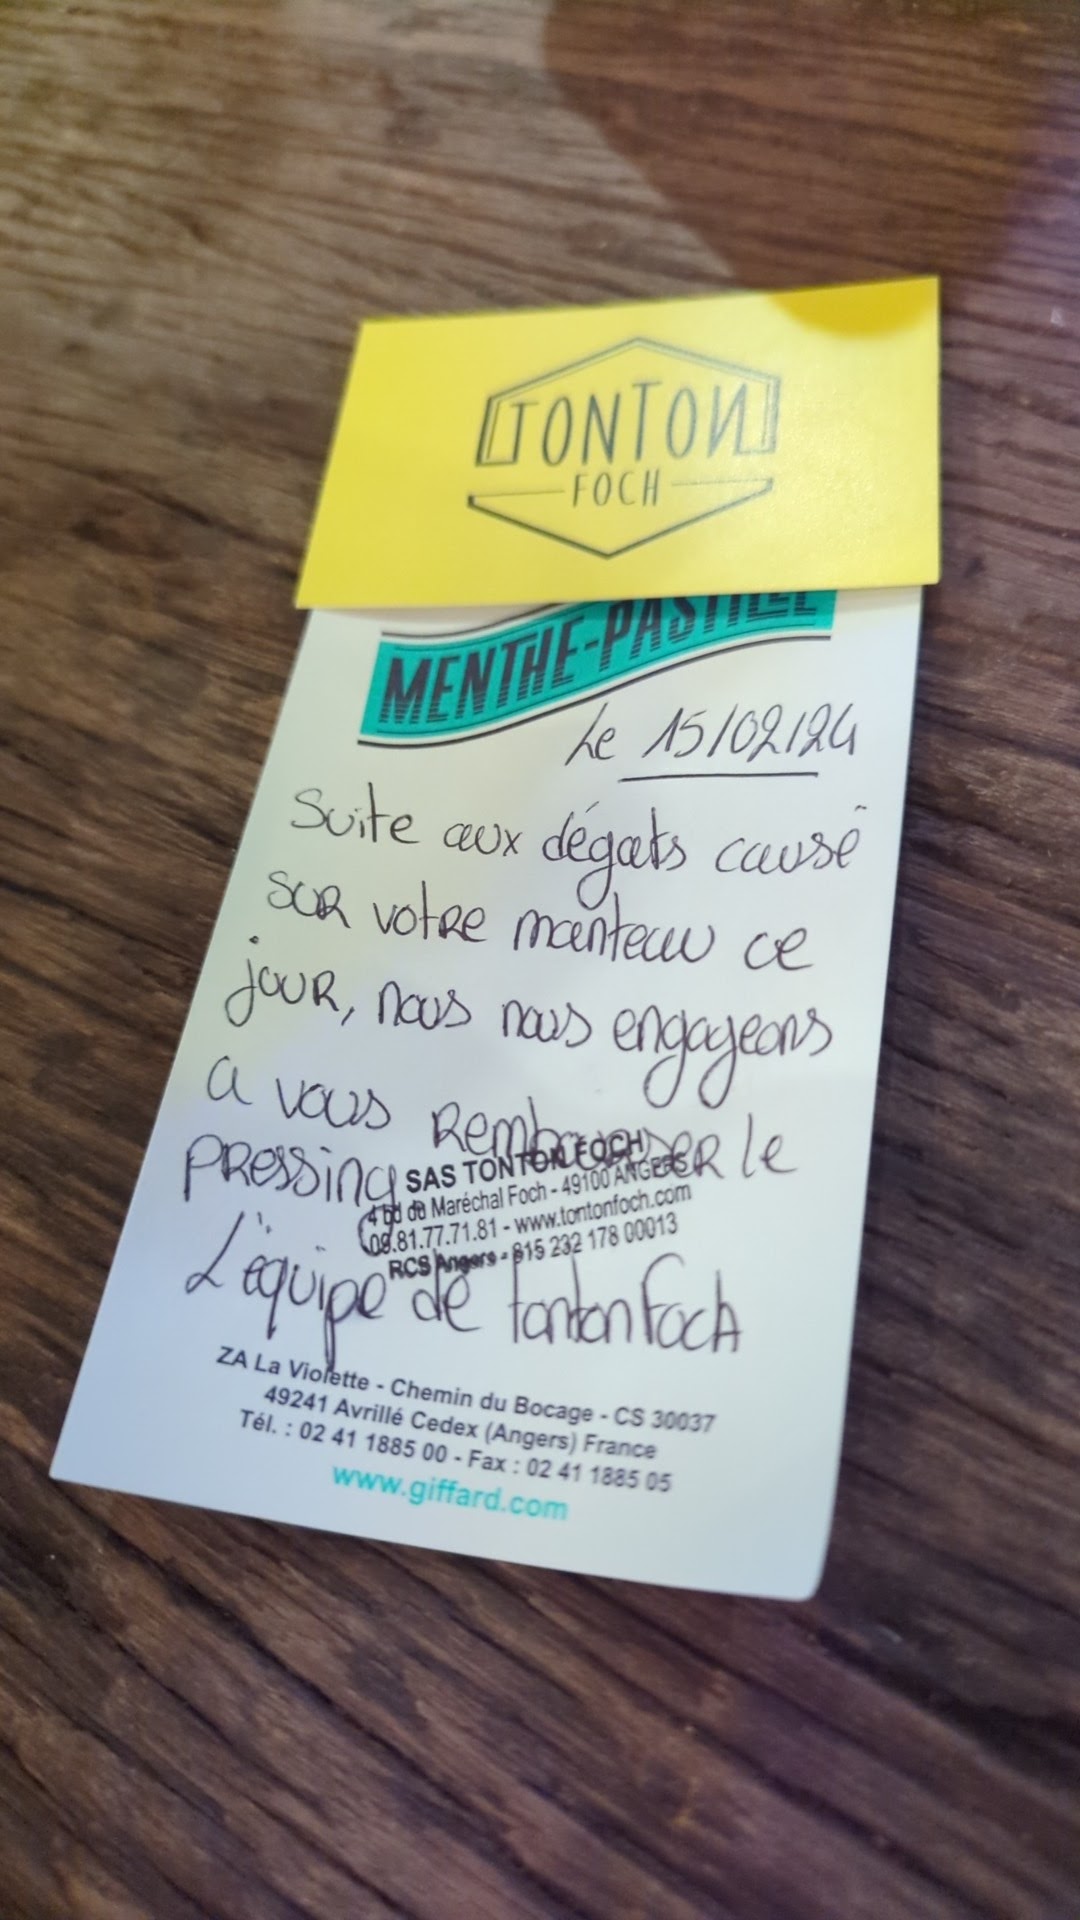 TONTON
FOCH
MENTHE-PASTILLE
Le 15/02/24
Suite aux dégats causé
sur votre manteau ce
jour, nous nous engageons
a vous Rembourser le
pressing
SAS TONTON FOCH
4 bd du Maréchal Foch - 49100 ANGERS
09.81.77.71.81 - www.tontonfoch.com
RCS Angers - 815 232 178 00013
L'équipe de tonton Foch
ZA La Violette - Chemin du Bocage - CS 30037
49241 Avrillé Cedex (Angers) France
Tél. : 02 41 1885 00 - Fax : 02 41 1885 05
www.giffard.com